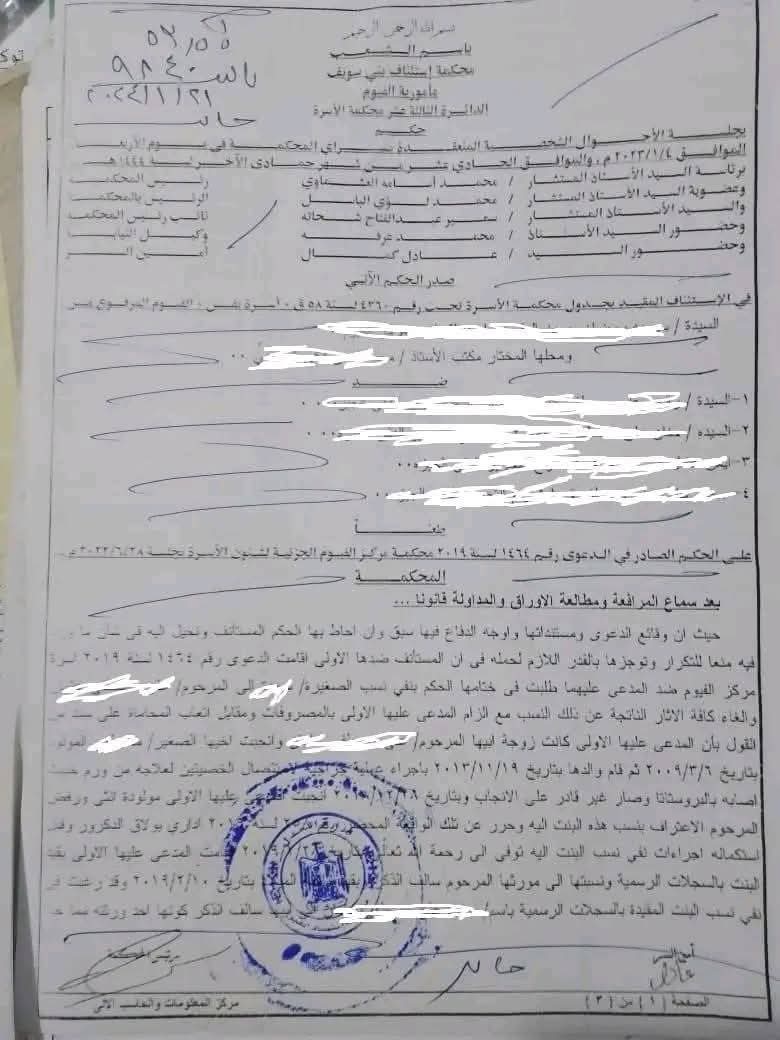 بسم الله الرحمن الرحيم
باسم الشعب
محكمة إستئناف بني سويف
مأمورية الفيوم
الدائرة الثالثة عشر محكمة الأسرة
حكم
٢٠٢٤/١/٢١
بجلسة الأحوال الشخصية المنعقدة بسراي المحكمة في يوم الأربعاء
الموافق ٢٠٢٣/١/٤ م ، والموافق الحادي عشر من شهر جمادى الآخر لسنة ١٤٤٤ هـ
برئاسة السيد الأستاذ المستشار / محمد أسامه العشماوي رئيس المحكمة
وعضوية السيد الأستاذ المستشار / محمد لؤي الباسل الرئيس بالمحكمة
والسيد الأستاذ المستشار / سمير عبدالفتاح شحاته نائب رئيس المحكمة
وحضور السيد الأستاذ / محمد عرفه وكيل النيابة
وحضور السيد / عادل كمال أمين السر
صدر الحكم الآتي
في الإستئناف المقيد بجدول محكمة الأسرة تحت رقم ١٤٣٦٠ لسنة ٥٨ ق ، أسرة نفس ، الفيوم المرفوع من
السيدة /
ومحلها المختار مكتب الأستاذ /
ضد
١-السيدة /
٢-السيده /
٣-
٤-
طعناً
على الحكم الصادر في الدعوى رقم ١٤٦٤ لسنة ٢٠١٩ محكمة مركز الفيوم الجزئية لشئون الأسرة بجلسة ٢٠٢٢/٦/٢٨ م
المحكمة
بعد سماع المرافعة ومطالعة الاوراق والمداولة قانونا ...
حيث ان وقائع الدعوى ومستنداتها واوجه الدفاع فيها سبق وان احاط بها الحكم المستأنف ونحيل اليه فى شان ما
فيه منعا للتكرار ونوجزها بالقدر اللازم لحمله فى ان المستأنف ضدها الاولى اقامت الدعوى رقم ١٤٦٤ لسنة ٢٠١٩ اسرة
مركز الفيوم ضد المدعى عليهما طلبت فى ختامها الحكم بنفى نسب الصغيرة/ الى المرحوم/
والغاء كافة الاثار الناتجة عن ذلك النسب مع الزام المدعى عليها الاولى بالمصروفات ومقابل اتعاب المحاماة على سند من
القول بأن المدعى عليها الاولى كانت زوجة ابيها المرحوم/ وانجبت اخيها الصغير/ المولود
بتاريخ ٢٠٠٩/٣/٦ ثم قام والدها بتاريخ ٢٠١٣/١١/١٩ باجراء عملية جراحية لاستئصال الخصيتين لعلاجه من ورم خبيث
اصابه بالبروستاتا وصار غير قادر على الانجاب وبتاريخ انجبت المدعى عليها الاولى مولودة انثى ورفض
المرحوم الاعتراف بنسب هذه البنت اليه وحرر عن تلك الواقعة المحضر لسنة اداري بولاق الدكرور وقبل
استكماله اجراءات نفى نسب البنت اليه توفى الى رحمة الله تعالى بتاريخ قامت المدعى عليها الاولى بقيد
البنت بالسجلات الرسمية ونسبتها الى مورثها المرحوم سالف الذكر بتاريخ ٢٠١٩/٢/١٠ وقد رغبت فى
نفى نسب البنت المقيدة بالسجلات الرسمية باسم/ سالف الذكر كونها احد ورثته مما
أمين السر
رئيس المحكمة
عادل
الصفحة (١) من (٣)
مركز المعلومات والحاسب الآلى